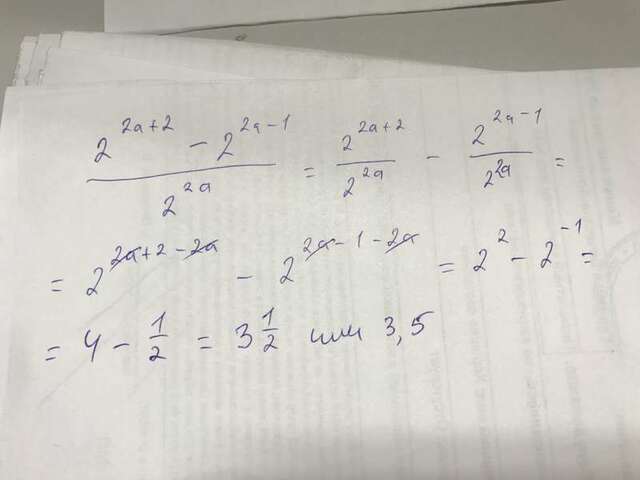 (2^(2a+2) - 2^(2a-1)) / 2^(2a) = 2^(2a+2) / 2^(2a) - 2^(2a-1) / 2^(2a) =
= 2^(2a+2-2a) - 2^(2a-1-2a) = 2^2 - 2^(-1) =
= 4 - 1/2 = 3 1/2 или 3,5